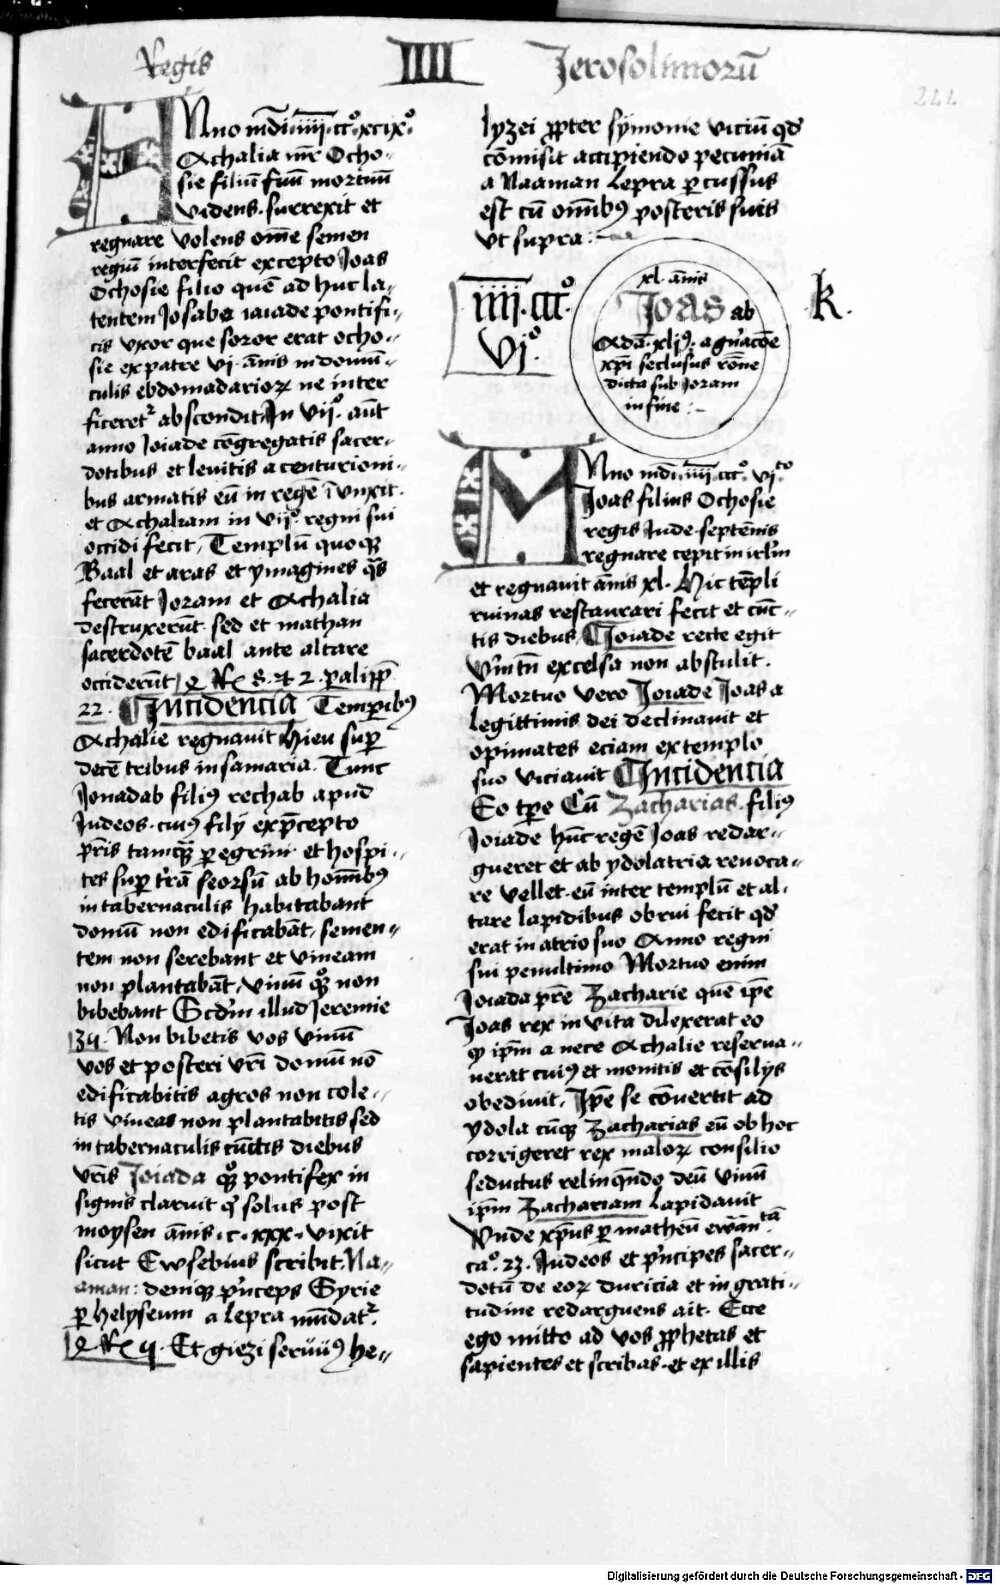 Regis IIII Jerosolimorū
244
ANno mūdi iiii ccº xcixº
Athalia mr̄ Ocho-
sie filiū suū mortuū
videns surrexit et
regnare volens om̄e semen
regiū interfecit excepto Joas
Ochosie filio quē ad huc la-
tentem Josaba iaiade pontifi-
cis vxor que soror erat ocho-
sie ex patre vi ānis in domū-
culis ebdomadarioꝝ ne inter
ficeretʳ abscondit In viiº aūt
anno Joiade cōgregatis sacer-
dotibus et levitis a centurioni-
bus armatis eū in regē īvnxit
et Athaliam in viiº regni sui
occidi fecit, Templū quoqꝫ
Baal et aras et ymagines q̄s
fecerāt Joram et Athalia
destruxerūt sed et mathan
sacerdotē baal ante altare
occiderūt 4 Rꝫ 8 et 2 palipp̄
22. Incidencia Temporibꝰ
Athalie regnauit Hieu suꝑ
decē tribus in samaria. Tunc
Jonadab filiꝰ rechab apud
Judeos cuiꝰ filij ex p̄cepto
pr̄is tamqȝ ꝑegrini et hospi-
tes suꝑ tr̄ā seorsū ab hoīnibꝰ
in tabernaculis habitabant
domū non edificabāt, semen-
tem non serebant et vineam
non plantabāt, vinū qȝ non
bibebant Scd̄m illud Jeremie
34. Non bibetis vos vinū
vos et posteri vr̄i domū nō
edificabitis agros non cole-
tis vineas non plantabitis sed
in tabernaculis cūctis diebus
vr̄is Joiada qȝ pontifex in
signis claruit qꝰ solus post
moysen ānis c xxx vixit
sicut Ewsebius scribit Na-
aman: deniqȝ p̄nceps Syrie
ꝑ helyseum a lepra mūdatʳ
4 Rꝫ 4 Et giezi servus he-
lyzei ꝓpter symonie viciū qd̄
cōmisit accipiendo pecuniā
a Naaman lepra ꝑcussus
est cū om̄ibꝰ posteris suis
vt supra:
iiii cccº
viº
xl ānis
Joas ab
k.
xp̄i seclusus rōne
dicta sub Joram
in fine:
ANno mūdi iiii cccº viᵗᵒ
Joas filius Ochosie
regis Jude septēnis
regnare cepit in irl̄m
et regnauit ānis xl. Hic tēpli
ruinas restaurari fecit et cūc-
tis diebus Joiade recte egit
vr̄mtn̄ excelsa non abstulit.
Mortuo vero Joiade Joas a
legittimis dei declinauit et
opimates eciam exemplo
suo viciauit Incidencia
Eo tꝑe Cū Zacharias filiꝰ
Joiade hūc regē Joas redar-
gueret et ab ydolatria reuoca-
re vellet eū inter templū et al-
tare lapidibus obrui fecit qd̄
erat in atrio suo Anno regni
sui penultimo Mortuo enim
Joiada pr̄e Zacharie quē ip̄e
Joas rex in vita dilexerat eo
qȝ ip̄m a nece Athalie reserua-
uerat cuiꝰ et monitis et cōsilijs
obediuit, Ip̄e se cōuertit ad
ydola cūqȝ Zacharias eū ob hoc
corrigeret rex maloꝝ consilio
seductus relinqn̄do deū vivū
ip̄m Zachariam lapidauit
Vnde xp̄us ꝑ matheū ewāⁿᵗᵃ̄
caº 23. Judeos et p̄ncipes sacer-
dotū de eoꝝ duricia et in grati-
tudine redarguens ait. Ecce
ego mitto ad vos ꝓphetas et
sapientes et scribas et ex illis
Digitalisierung gefördert durch die Deutsche Forschungsgemeinschaft - DFG